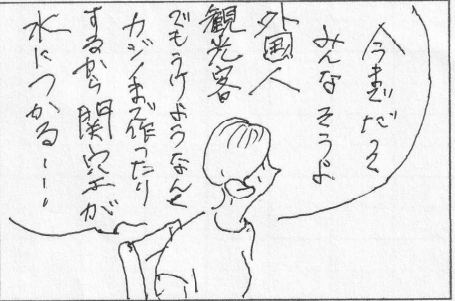 今までだって
みんなそうよ
外国人
観光客
でもうけようなんて
カジノまで作ったり
するから関空が
水につかる・・・